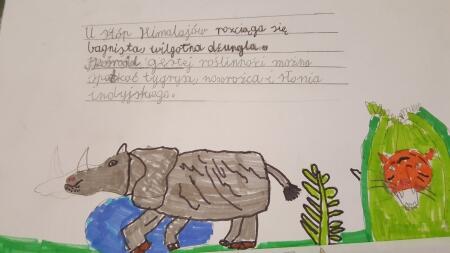 U stóp Himalajów rozciąga się
bagnista, wilgotna dżungla.
Pośród gęstej roślinności można
spotkać tygrysa, nosorożca i słonia
indyjskiego.